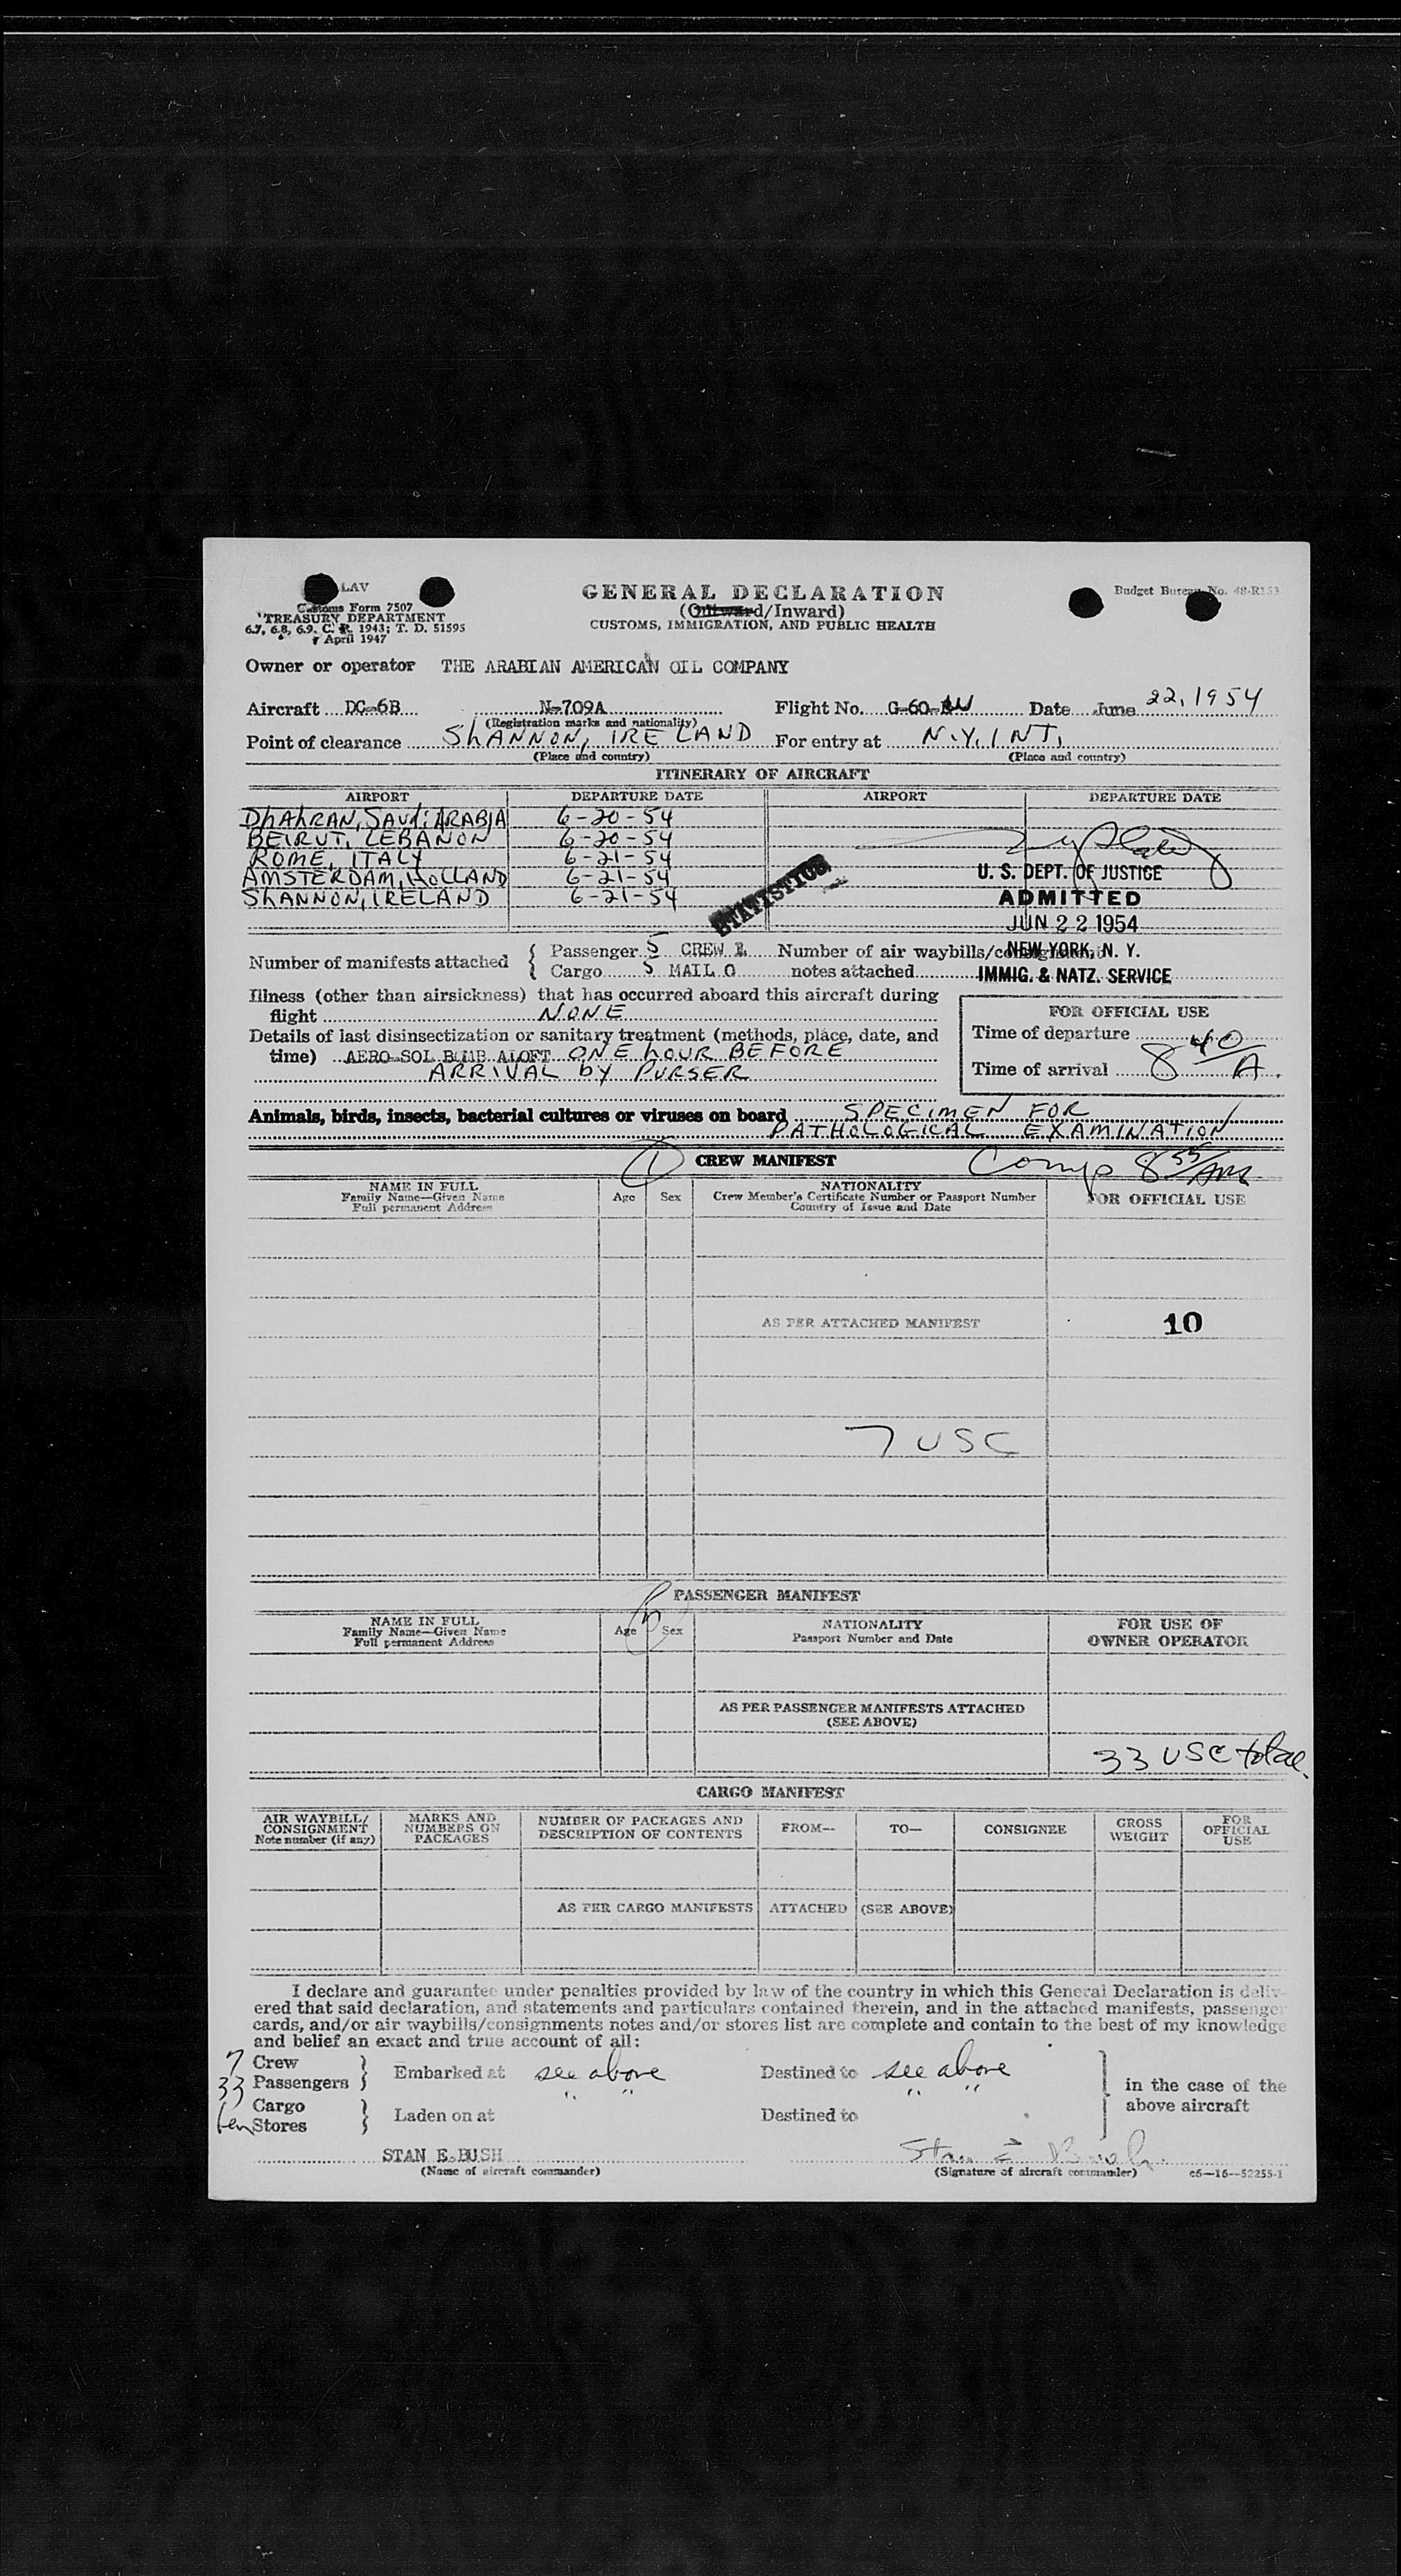 LAV
Customs Form 7507
TREASURY DEPARTMENT
6.7, 6.8, 6.9. C. R. 1943; T. D. 51595
April 1947
GENERAL DECLARATION
(Outward/Inward)
CUSTOMS, IMMIGRATION, AND PUBLIC HEALTH
Budget Bureau No. 48-R153
Owner or operator THE ARABIAN AMERICAN OIL COMPANY
Aircraft DC-6B N-709A Flight No. G-60- Date June 22, 1954
(Registration marks and nationality)
Point of clearance ShANNON, IRELAND For entry at N.Y. INT.
(Place and country) (Place and country)
ITINERARY OF AIRCRAFT
AIRPORT DEPARTURE DATE AIRPORT DEPARTURE DATE
DhAhRAN, SAUdi ARABIA 6-20-54
BEIRUT, LEBANON 6-20-54
ROME, ITALY 6-21-54
AMSTERDAM, HOLLAND 6-21-54
ShANNON, IRELAND 6-21-54
STATISTICS
U. S. DEPT. OF JUSTICE
ADMITTED
JUN 22 1954
NEW YORK, N. Y.
IMMIG. & NATZ. SERVICE
Number of manifests attached { Passenger 5 CREW 1 Number of air waybills/consignment
Cargo 5 MAIL 0 notes attached
Illness (other than airsickness) that has occurred aboard this aircraft during
flight NONE
Details of last disinsectization or sanitary treatment (methods, place, date, and
time) AERO-SOL BOMB ALOFT ONE hOUR BEFORE
ARRIVAL by PURSER
FOR OFFICIAL USE
Time of departure
Time of arrival 8 40/A.
Animals, birds, insects, bacterial cultures or viruses on board SPECIMEN FOR
PATHOLOGICAL EXAMINATION
(1) CREW MANIFEST Comp 8 55/AM
NAME IN FULL
Family Name—Given Name
Full permanent Address
Age Sex
NATIONALITY
Crew Member's Certificate Number or Passport Number
Country of Issue and Date
FOR OFFICIAL USE
AS PER ATTACHED MANIFEST 10
7 USC
PASSENGER MANIFEST
NAME IN FULL
Family Name—Given Name
Full permanent Address
Age Sex
NATIONALITY
Passport Number and Date
FOR USE OF
OWNER OPERATOR
AS PER PASSENGER MANIFESTS ATTACHED
(SEE ABOVE)
33 USC total
CARGO MANIFEST
AIR WAYBILL/
CONSIGNMENT
Note number (if any)
MARKS AND
NUMBERS ON
PACKAGES
NUMBER OF PACKAGES AND
DESCRIPTION OF CONTENTS
FROM— TO— CONSIGNEE
GROSS
WEIGHT
FOR
OFFICIAL
USE
AS PER CARGO MANIFESTS ATTACHED (SEE ABOVE)
I declare and guarantee under penalties provided by law of the country in which this General Declaration is deliv-
ered that said declaration, and statements and particulars contained therein, and in the attached manifests, passenger
cards, and/or air waybills/consignments notes and/or stores list are complete and contain to the best of my knowledge
and belief an exact and true account of all:
7 Crew
33 Passengers } Embarked at see above Destined to see above
" " " "
Cargo
Stores } Laden on at Destined to
in the case of the
above aircraft
STAN E. BUSH Stan E Bush
(Name of aircraft commander) (Signature of aircraft commander) c6—16—52255-1